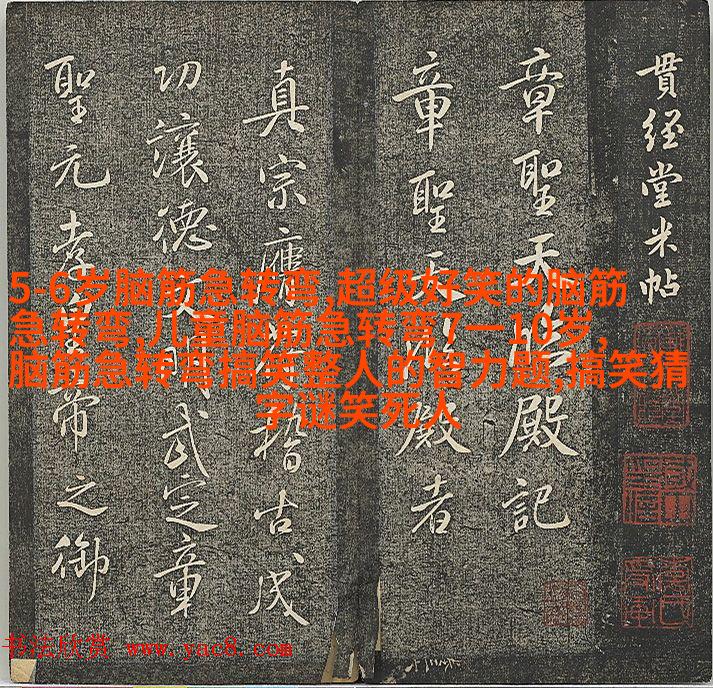 貫經堂米帖
章聖天臨殿記
章聖天臨殿者
真宗膺符稽古成
功讓德文明武定章
聖元孝皇帝之御
5-6岁脑筋急转弯,超级好笑的脑筋
急转弯,儿童脑筋急转弯7一10岁,
脑筋急转弯搞笑整人的智力题,搞笑猜
字谜笑死人
书法欣赏 www.yac8.com